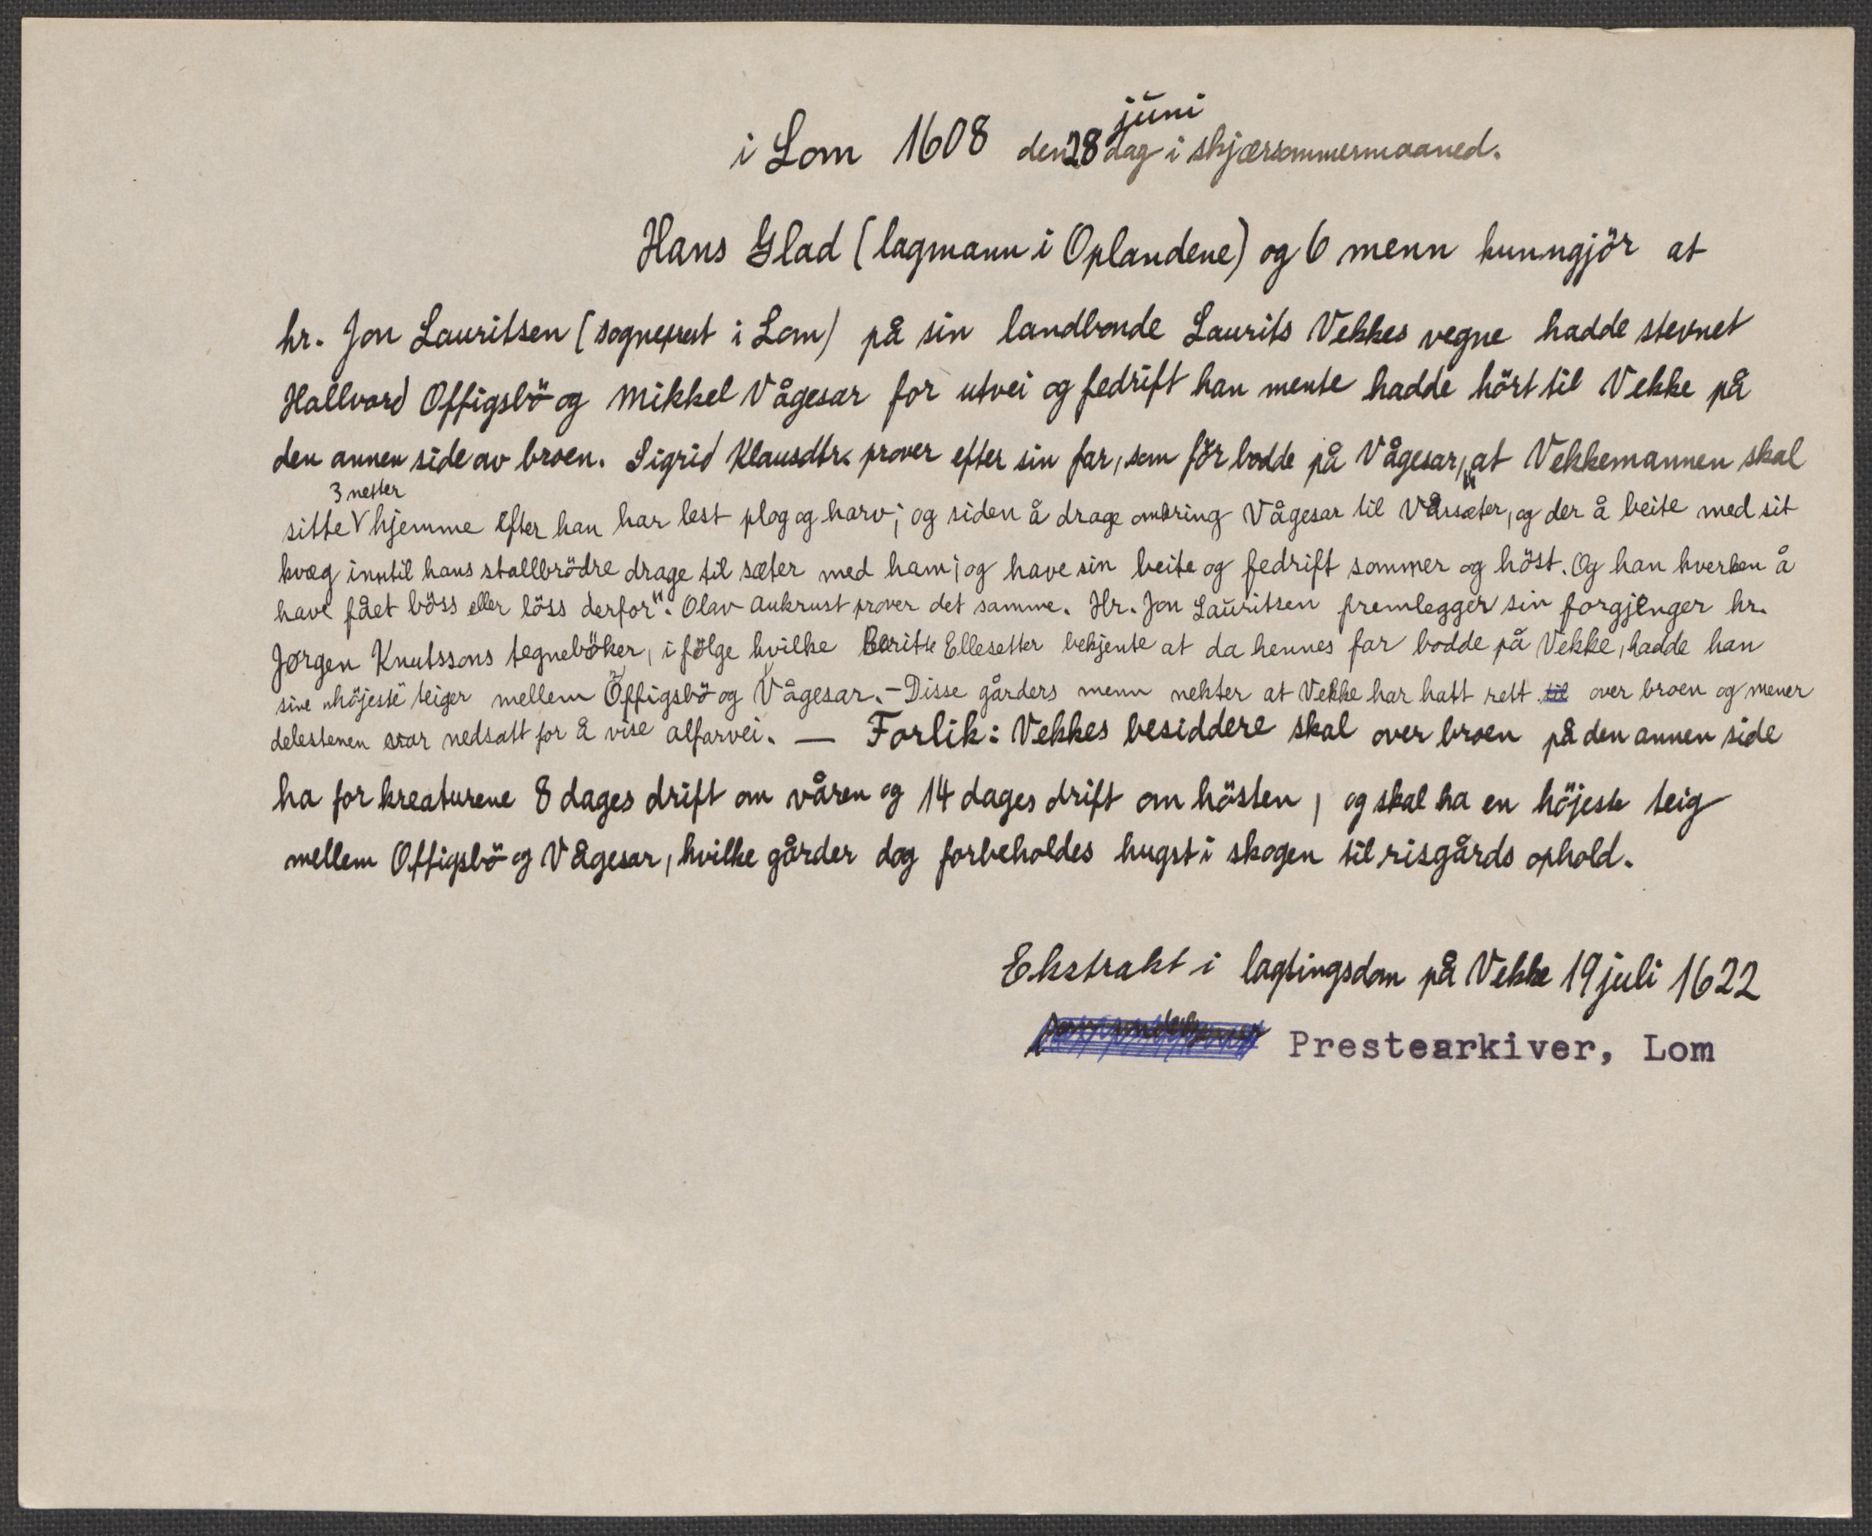 juni
i Lom 1608 den 28 dag i skjærsommermaaned.
Hans Glad (lagmann i Oplandene) og 6 menn kunngjör at
hr. Jon Lauritsen (sogneprest i Lom) på sin landbonde Laurits Vekkes vegne hadde stevnet
Hallvord Offigsbö og Mikkel Vågesar for utvei og fedrift han mente hadde hört til Vekke på
den annen side av broen. Sigrid Klausdtr. prover efter sin far, som för bodde på Vågesar, "at Vekkemannen skal
3 netter
sitte hjemme efter han har lest plog og harv; og siden å drage omkring Vågesar til Vårsæter, og der å beite med sit
kvæg inntil hans stallbrödre drage til sæter med ham; og have sin beite og fedrift sommer og höst. Og han hverken å
have fået böss eller löss derfor". Olav Aukrust prover det samme. Hr. Jon Lauritsen fremlegger sin forgjenger hr.
Jørgen Knutssons tegneböker, i fölge hvilke Beritte Ellesetter bekjente at da hennes far bodde på Vekke, hadde han
sine "höjeste" teiger mellem Offigsbö og Vågesar. - Disse gårders menn nekter at Vekke har hatt rett til over broen og mener
delestenen var nedsatt for å vise alfarvei. — Forlik: Vekkes besiddere skal over broen på den annen side
ha for kreaturene 8 dages drift om våren og 14 dages drift om hösten, og skal ha en höjeste teig
mellem Offigsbö og Vågesar, hvilke gårder dog forbeholdes hugst i skogen til risgårds ophold.
Ekstrakt i lagtingsdom på Vekke 19 juli 1622
Prestearkiver, Lom